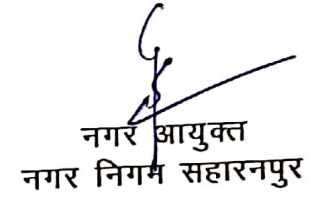 नगर आयुक्त
नगर निगम सहारनपुर